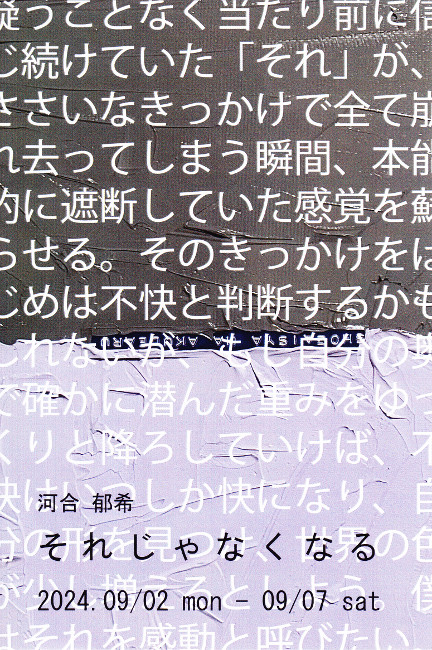 疑うことなく当たり前に信
じ続けていた「それ」が、
ささいなきっかけで全て崩
れ去ってしまう瞬間、本能
的に遮断していた感覚を蘇
らせる。そのきっかけをは
じめは不快と判断するかも
しれないが、もし自分の奥
で確かに潜んだ重みをゆっ
くりと降ろしていけば、不
快はいつしか快になり、自
河合 郁希
分の形を見つけ、世界の色
それじゃなくなる
が少し増えるとしよう。僕
2024.09/02 mon − 09/07 sat
はそれを感動と呼びたい。